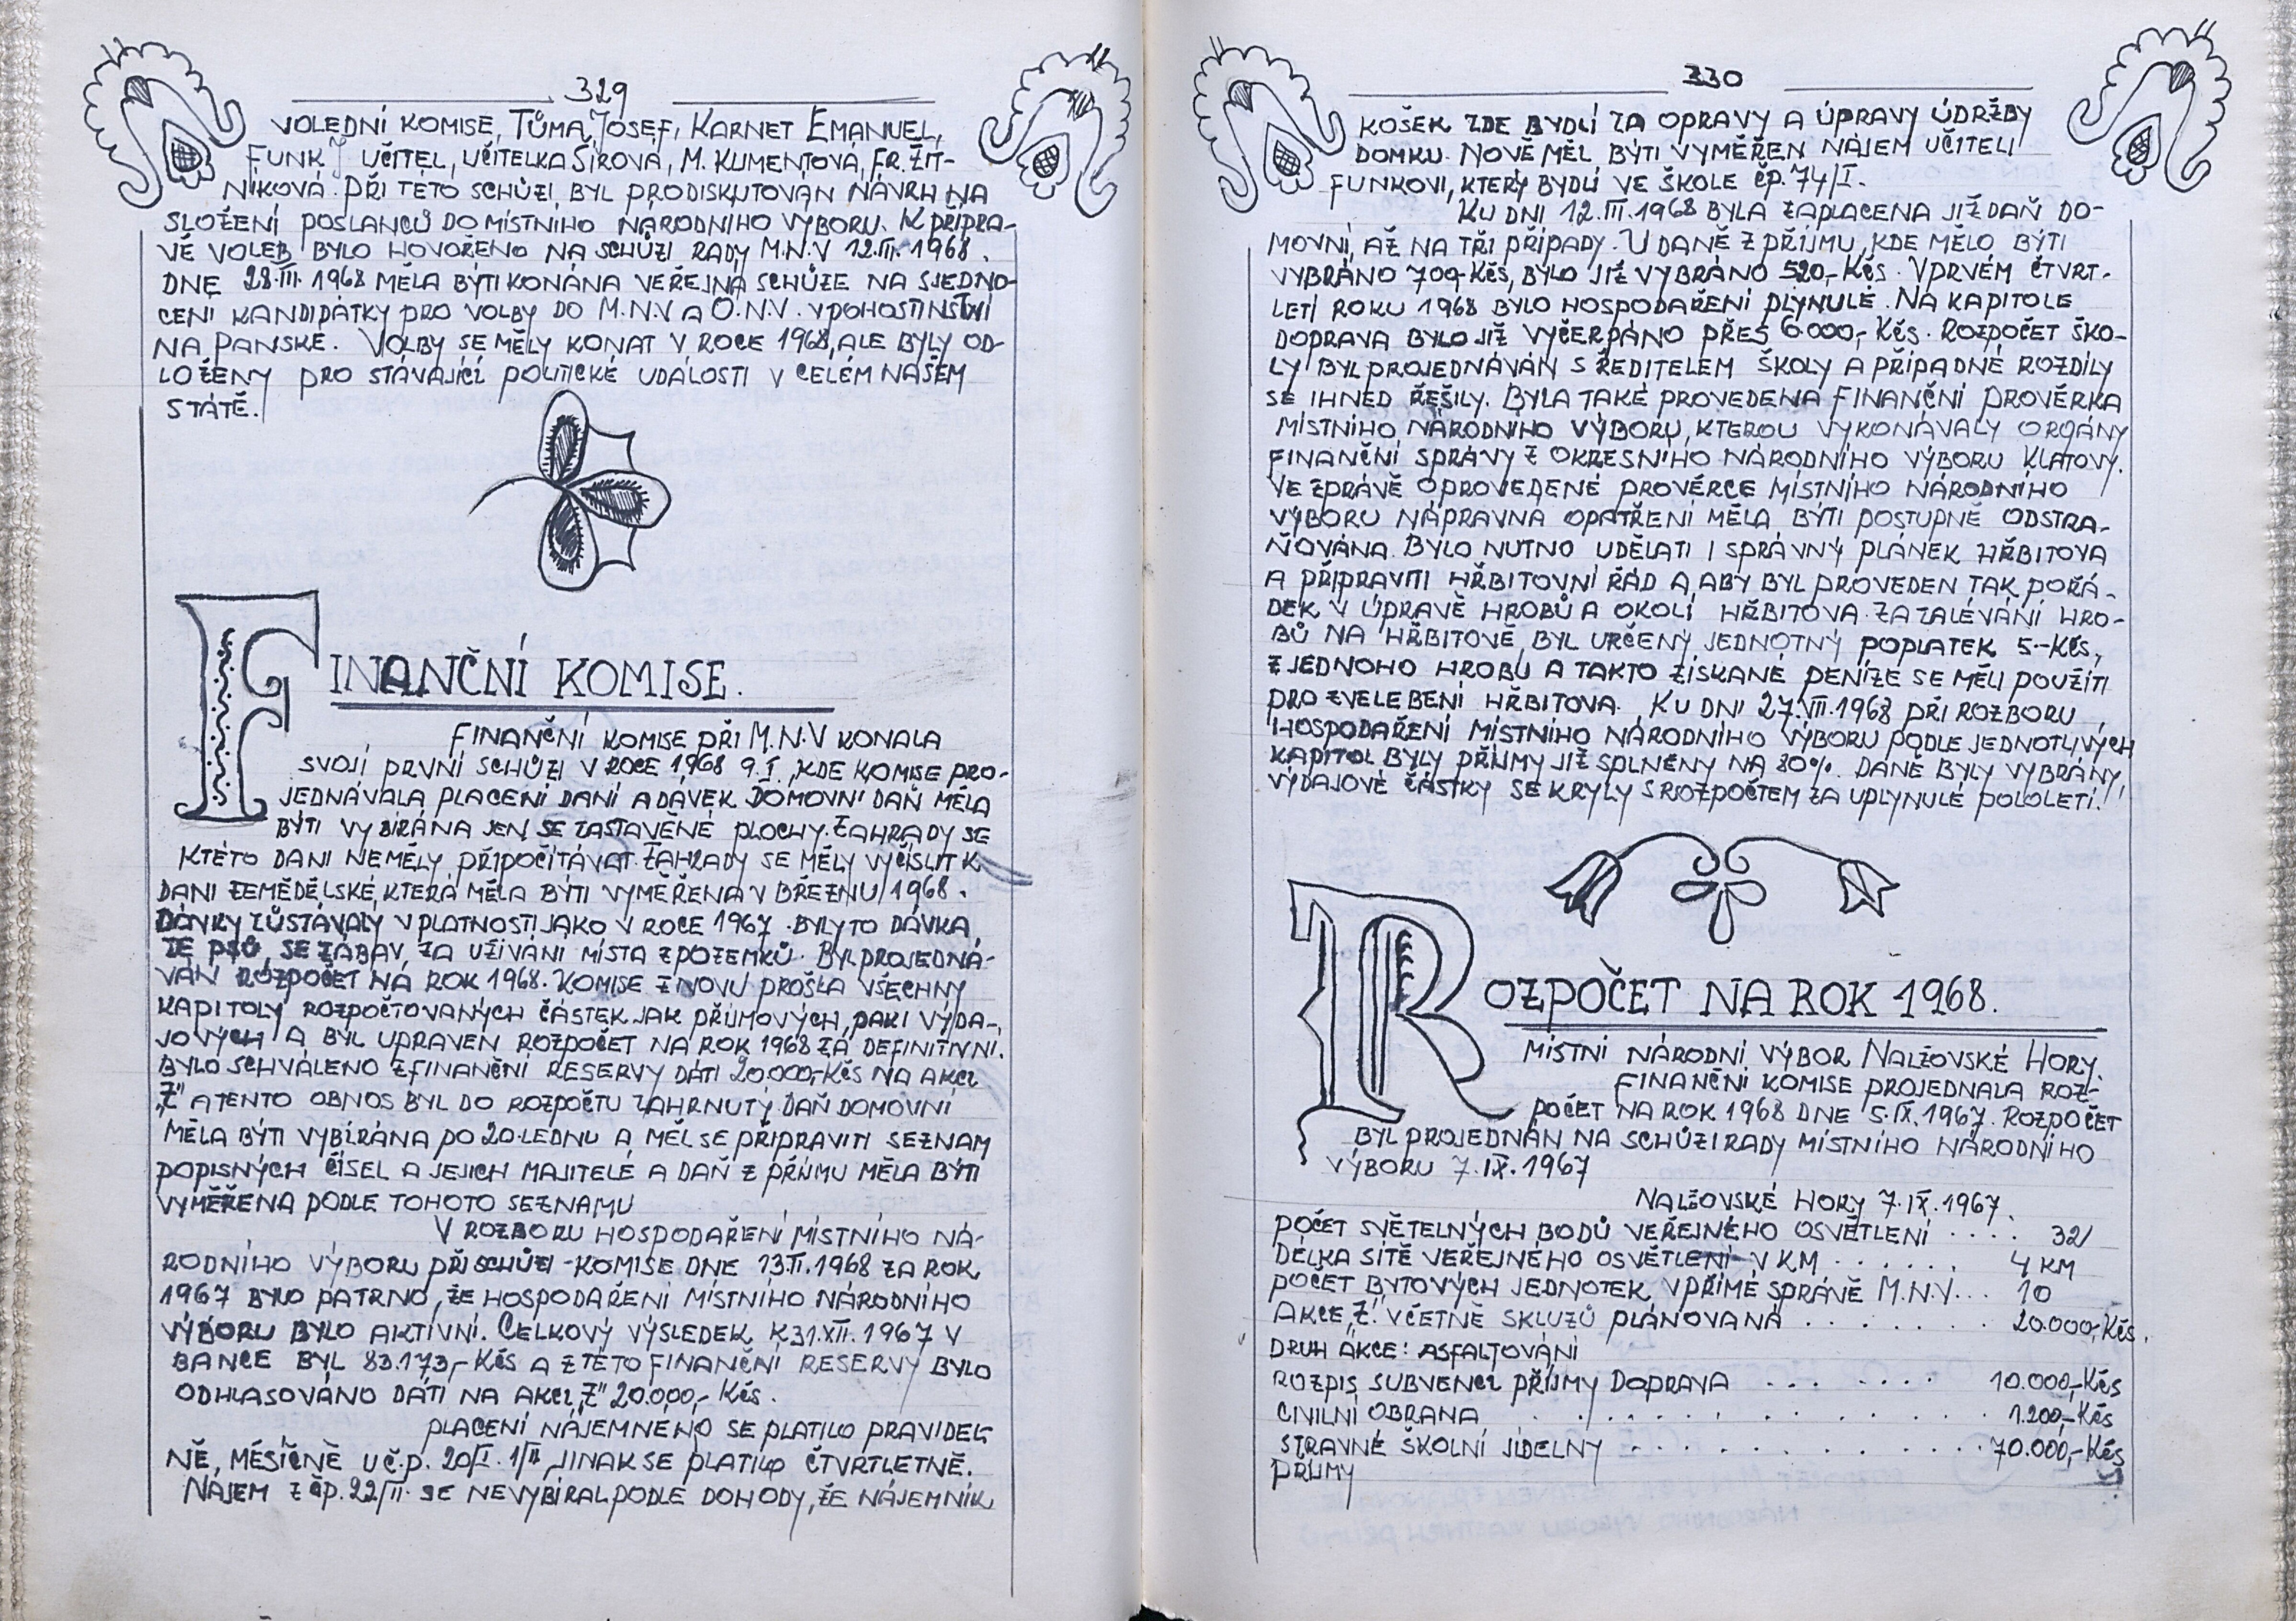 329
VOLEDNÍ KOMISE, TŮMA JOSEF, KARNET EMANUEL,
FUNK J UČITEL, UČITELKA SÍROVÁ, M. KUMENTOVÁ, FR. ŽIT-
NÍKOVÁ. PŘI TÉTO SCHŮZI, BYL PRODISKUTOVÁN NÁVRH NA
SLOŽENÍ POSLANCŮ DO MÍSTNÍHO NÁRODNÍHO VÝBORU. K PŘÍPRA-
VĚ VOLEB BYLO HOVOŘENO NA SCHŮZI RADY M.N.V 12.III. 1968.
DNE 28.III. 1968 MĚLA BÝTI KONÁNA VEŘEJNÁ SCHŮZE NA SJEDNO-
CENÍ KANDIDÁTKY PRO VOLBY DO M.N.V A O.N.V. V POHOSTINSTVÍ
NA PANSKÉ. VOLBY SE MĚLY KONAT V ROCE 1968, ALE BYLY OD-
LOŽENY PRO STÁVAJÍCÍ POLITICKÉ UDÁLOSTI V CELÉM NAŠEM
STÁTĚ.
FINANČNÍ KOMISE.
FINANČNÍ KOMISE PŘI M.N.V KONALA
SVOJÍ PRVNÍ SCHŮZI V ROCE 1968 9.I., KDE KOMISE PRO-
JEDNÁVALA PLACENÍ DANÍ A DÁVEK. DOMOVNÍ DAŇ MĚLA
BÝTI VYBÍRÁNA JEN SE ZASTAVĚNÉ PLOCHY. ZAHRADY SE
K TÉTO DANI NEMĚLY PŘIPOČÍTÁVAT. ZAHRADY SE MĚLY VYČÍSLIT K
DANI ZEMĚDĚLSKÉ, KTERÁ MĚLA BÝTI VYMĚŘENA V BŘEZNU 1968.
DÁVKY ZŮSTÁVALY V PLATNOSTI JAKO V ROCE 1967. BYLY TO DÁVKA
ZE PSŮ, SE ZÁBAV, ZA UŽÍVÁNÍ MÍSTA Z POZEMKŮ. BYL PROJEDNÁ-
VÁN ROZPOČET NA ROK 1968. KOMISE ZNOVU PROŠLA VŠECHNY
KAPITOLY ROZPOČTOVANÝCH ČÁSTEK JAK PŘÍJMOVÝCH, PAK I VÝDA-
JOVÝCH A BYL UPRAVEN ROZPOČET NA ROK 1968 ZA DEFINITIVNÍ.
BYLO SCHVÁLENO Z FINANČNÍ RESERVY DÁTI 20.000,- Kčs NA AKCI
„Z" A TENTO OBNOS BYL DO ROZPOČTU ZAHRNUTÝ. DAŇ DOMOVNÍ
MĚLA BÝTI VYBÍRÁNA PO 20. LEDNU A MĚL SE PŘIPRAVITI SEZNAM
POPISNÝCH ČÍSEL A JEJICH MAJITELÉ A DAŇ Z PŘÍJMU MĚLA BÝTI
VYMĚŘENA PODLE TOHOTO SEZNAMU
V ROZBORU HOSPODAŘENÍ MÍSTNÍHO NÁ-
RODNÍHO VÝBORU PŘI SCHŮZI-KOMISE DNE 13.II. 1968 ZA ROK
1967 BYLO PATRNO, ŽE HOSPODAŘENÍ MÍSTNÍHO NÁRODNÍHO
VÝBORU BYLO AKTIVNÍ. CELKOVÝ VÝSLEDEK K 31.XII. 1967 V
BANCE BYL 83.173,- Kčs A Z TÉTO FINANČNÍ RESERVY BYLO
ODHLASOVÁNO DÁTI NA AKCI „Z" 20.000,- Kčs.
PLACENÍ NÁJEMNÉHO SE PLATILO PRAVIDEL-
NĚ, MĚSÍČNĚ U Č.P. 20/I. 1/II JINAK SE PLATILO ČTVRTLETNĚ.
NÁJEM Z ČP. 22/II. SE NEVYBÍRAL PODLE DOHODY, ŽE NÁJEMNÍK
330
KOŠEK ZDE BYDLÍ ZA OPRAVY A ÚPRAVY ÚDRŽBY
DOMKU. NOVĚ MĚL BÝTI VYMĚŘEN NÁJEM UČITELI
FUNKOVI, KTERÝ BYDLÍ VE ŠKOLE ČP. 74/I.
KU DNI 12.III. 1968 BYLA ZAPLACENA JIŽ DAŇ DO-
MOVNÍ, AŽ NA TŘI PŘÍPADY. U DANĚ Z PŘÍJMU, KDE MĚLO BÝTI
VYBRÁNO 700,- Kčs, BYLO JIŽ VYBRÁNO 520,- Kčs. V PRVÉM ČTVRT-
LETÍ ROKU 1968 BYLO HOSPODAŘENÍ PLYNULÉ. NA KAPITOLE
DOPRAVA BYLO JIŽ VYČERPÁNO PŘES 6.000,- Kčs. ROZPOČET ŠKO-
LY BYL PROJEDNÁVÁN S ŘEDITELEM ŠKOLY A PŘÍPADNÉ ROZDÍLY
SE IHNED ŘEŠILY. BYLA TAKÉ PROVEDENA FINANČNÍ PROVĚRKA
MÍSTNÍHO NÁRODNÍHO VÝBORU, KTEROU VYKONÁVALY ORGÁNY
FINANČNÍ SPRÁVY Z OKRESNÍHO NÁRODNÍHO VÝBORU KLATOVY.
VE ZPRÁVĚ O PROVEDENÉ PROVĚRCE MÍSTNÍHO NÁRODNÍHO
VÝBORU NÁPRAVNÁ OPATŘENÍ MĚLA BÝTI POSTUPNĚ ODSTRA-
ŇOVÁNA. BYLO NUTNO UDĚLATI I SPRÁVNÝ PLÁNEK HŘBITOVA
A PŘIPRAVITI HŘBITOVNÍ ŘÁD A ABY BYL PROVEDEN TAK POŘÁ-
DEK V ÚPRAVĚ HROBŮ A OKOLÍ HŘBITOVA. ZA ZALÉVÁNÍ HRO-
BŮ NA HŘBITOVĚ, BYL URČENÝ JEDNOTNÝ POPLATEK 5.- Kčs,
Z JEDNOHO HROBU A TAKTO ZÍSKANÉ PENÍZE SE MĚLI POUŽÍTI
PRO ZVELEBENÍ HŘBITOVA. KU DNI 27.VII. 1968 PŘI ROZBORU
HOSPODAŘENÍ MÍSTNÍHO NÁRODNÍHO VÝBORU PODLE JEDNOTLIVÝCH
KAPITOL BYLY PŘÍJMY JIŽ SPLNĚNY NA 80%. DANĚ BYLY VYBRÁNY,
VÝDAJOVÉ ČÁSTKY SE KRYLY S ROZPOČTEM ZA UPLYNULÉ POLOLETÍ.
ROZPOČET NA ROK 1968.
MÍSTNÍ NÁRODNÍ VÝBOR NALŽOVSKÉ HORY.
FINANČNÍ KOMISE PROJEDNALA ROZ-
POČET NA ROK 1968 DNE 5.IX. 1967. ROZPOČET
BYL PROJEDNÁN NA SCHŮZI RADY MÍSTNÍHO NÁRODNÍHO
VÝBORU 7.IX. 1967
NALŽOVSKÉ HORY 7.IX. 1967.
POČET SVĚTELNÝCH BODŮ VEŘEJNÉHO OSVĚTLENÍ .... 32/
DÉLKA SÍTĚ VEŘEJNÉHO OSVĚTLENÍ V KM ....... 4 KM
POČET BYTOVÝCH JEDNOTEK V PŘÍMÉ SPRÁNĚ M.N.V... 10
AKCE „Z" VČETNĚ SKLUZŮ PLÁNOVANÁ ........ 20.000,- Kčs.
DRUH AKCE: ASFALTOVÁNÍ
ROZPIS SUBVENCÍ PŘÍJMY DOPRAVA ........ 10.000,- Kčs
CIVILNÍ OBRANA ............ 1.200,- Kčs
STRAVNÉ ŠKOLNÍ JÍDELNY ............ 70.000,- Kčs
PŘÍJMY